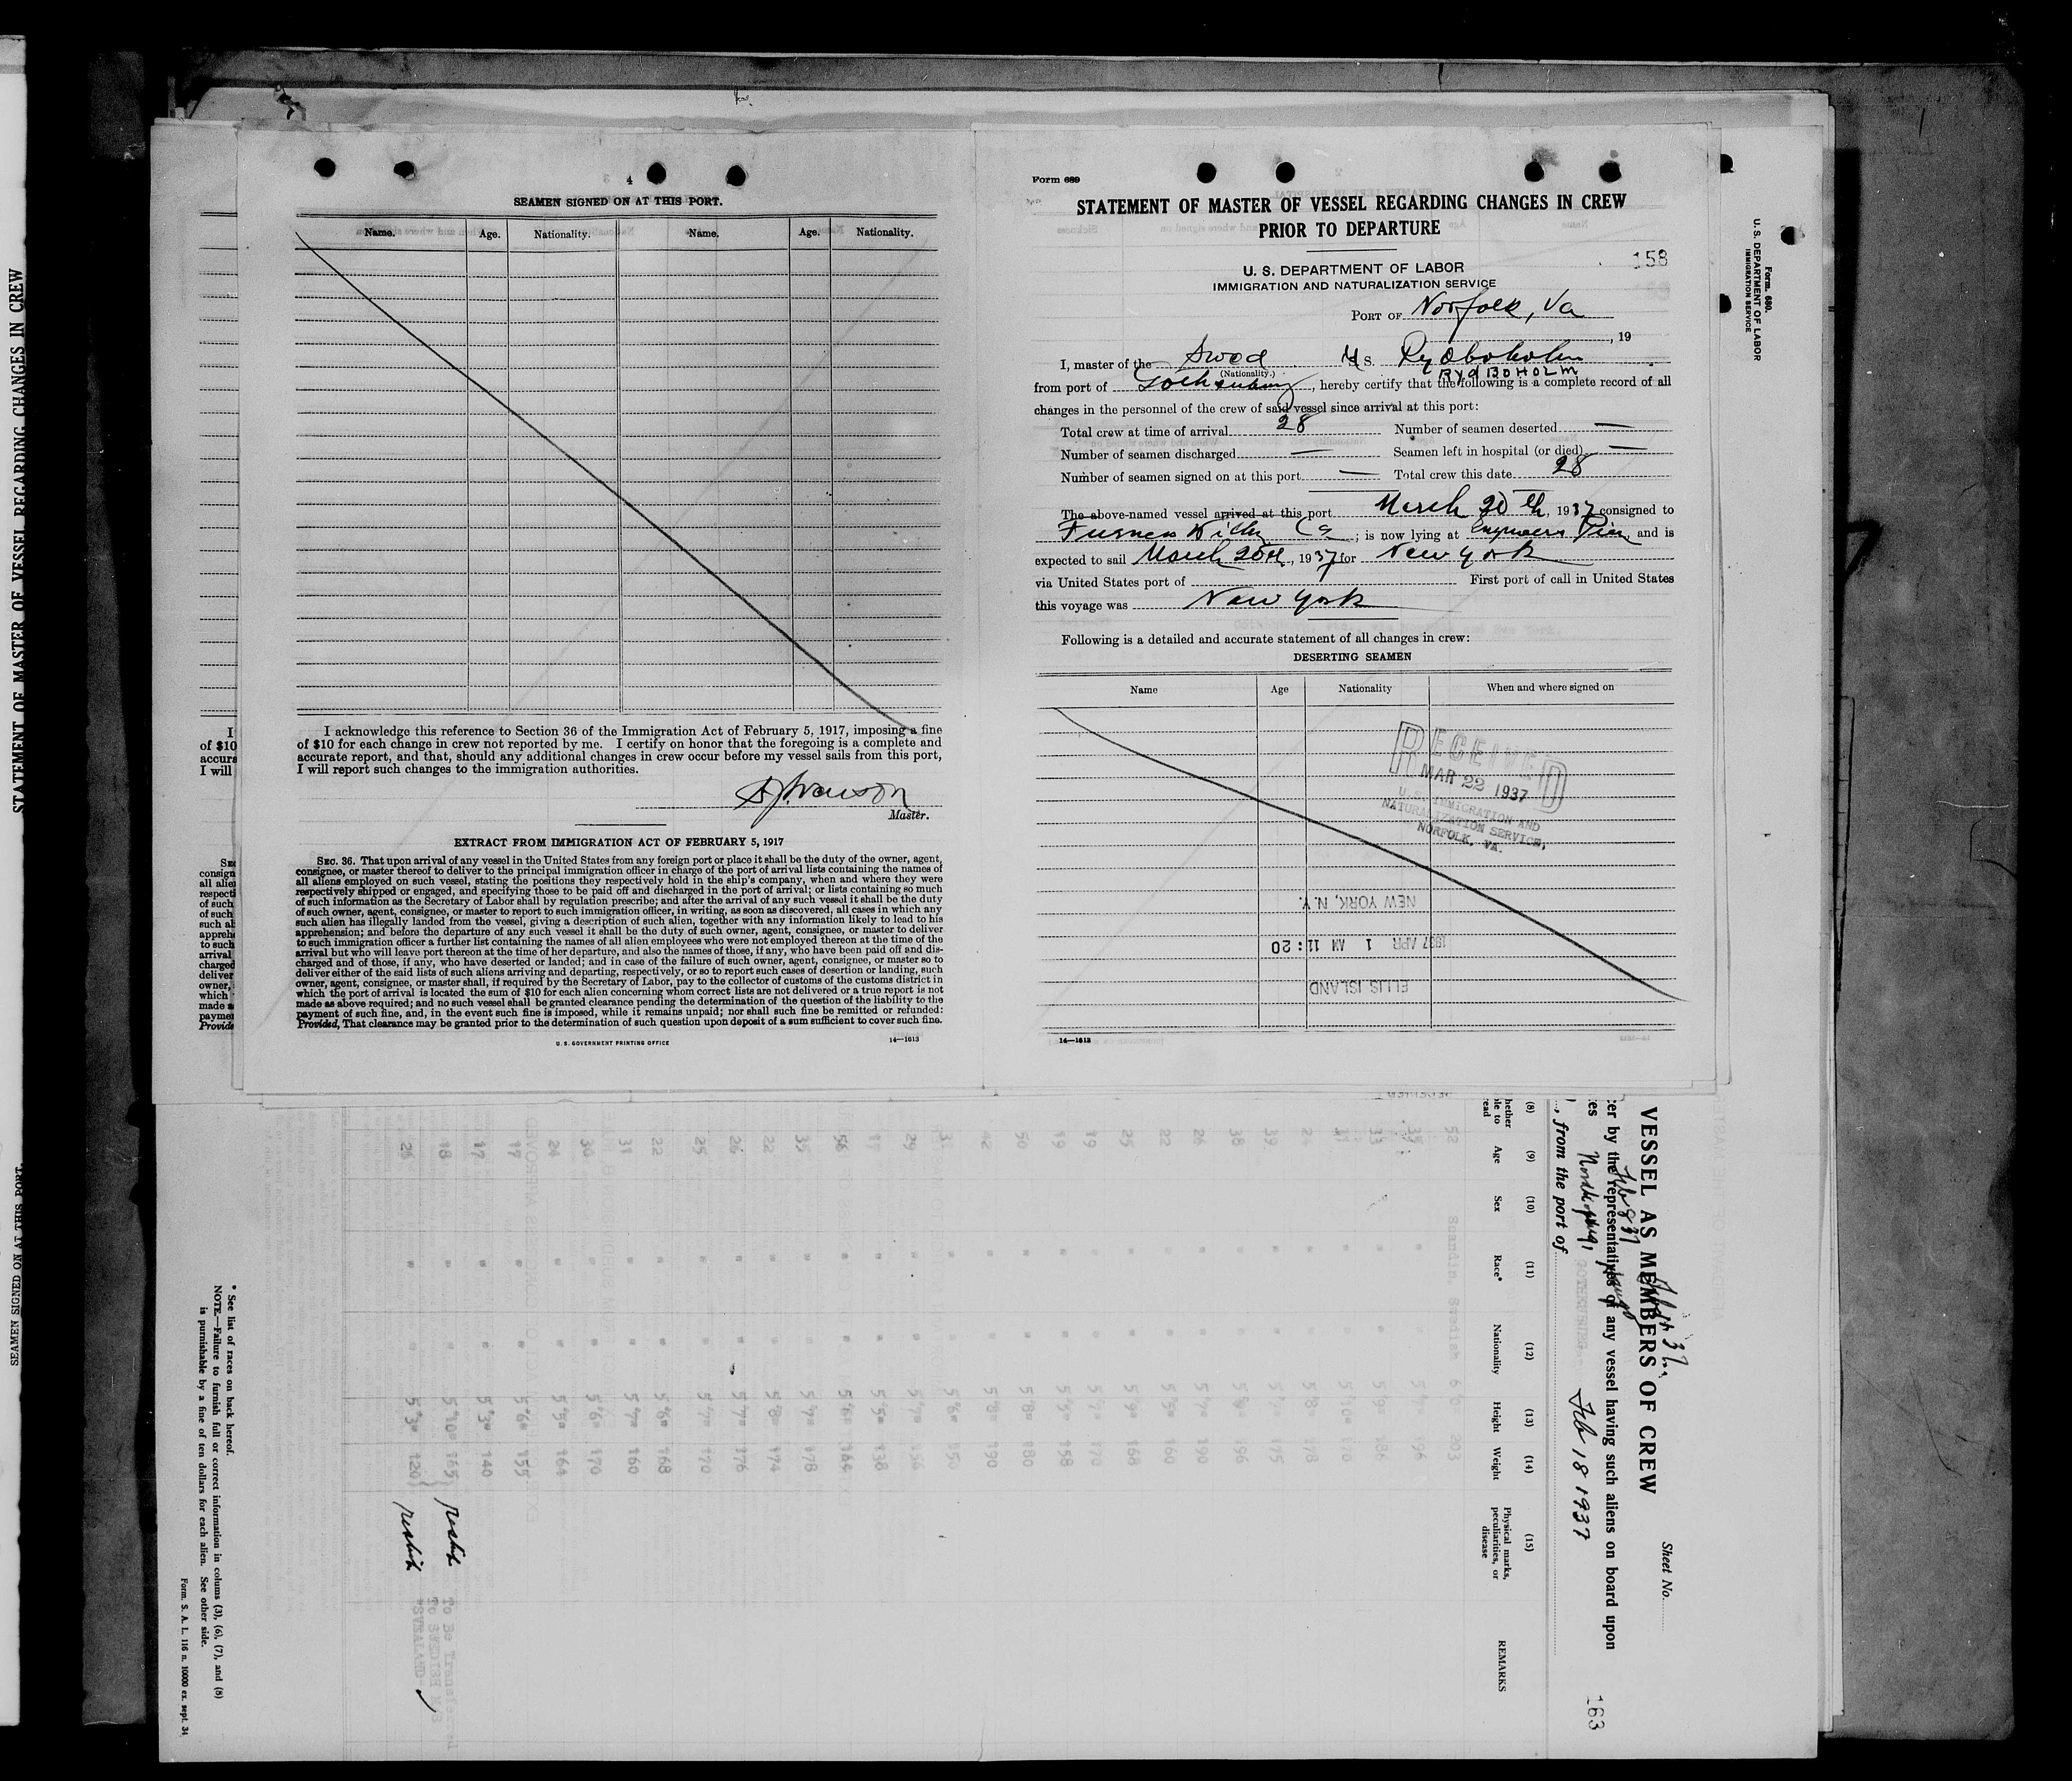 4
SEAMEN SIGNED ON AT THIS PORT.
Name. Age. Nationality. Name. Age. Nationality.
I acknowledge this reference to Section 36 of the Immigration Act of February 5, 1917, imposing a fine
of $10 for each change in crew not reported by me. I certify on honor that the foregoing is a complete and
accurate report, and that, should any additional changes in crew occur before my vessel sails from this port,
I will report such changes to the immigration authorities.
Master.
EXTRACT FROM IMMIGRATION ACT OF FEBRUARY 5, 1917
SEC. 36. That upon arrival of any vessel in the United States from any foreign port or place it shall be the duty of the owner, agent,
consignee, or master thereof to deliver to the principal immigration officer in charge of the port of arrival lists containing the names of
all aliens employed on such vessel, stating the positions they respectively hold in the ship's company, when and where they were
respectively shipped or engaged, and specifying those to be paid off and discharged in the port of arrival; or lists containing so much
of such information as the Secretary of Labor shall by regulation prescribe; and after the arrival of any such vessel it shall be the duty
of such owner, agent, consignee, or master to report to such immigration officer, in writing, as soon as discovered, all cases in which any
such alien has illegally landed from the vessel, giving a description of such alien, together with any information likely to lead to his
apprehension; and before the departure of any such vessel it shall be the duty of such owner, agent, consignee, or master to deliver
to such immigration officer a further list containing the names of all alien employees who were not employed thereon at the time of the
arrival but who will leave port thereon at the time of her departure, and also the names of those, if any, who have been paid off and dis-
charged and of those, if any, who have deserted or landed; and in case of the failure of such owner, agent, consignee, or master so to
deliver either of the said lists of such aliens arriving and departing, respectively, or so to report such cases of desertion or landing, such
owner, agent, consignee, or master shall, if required by the Secretary of Labor, pay to the collector of customs of the customs district in
which the port of arrival is located the sum of $10 for each alien concerning whom correct lists are not delivered or a true report is not
made as above required; and no such vessel shall be granted clearance pending the determination of the question of the liability to the
payment of such fine, and, in the event such fine is imposed, while it remains unpaid; nor shall such fine be remitted or refunded:
Provided, That clearance may be granted prior to the determination of such question upon deposit of a sum sufficient to cover such fine.
U. S. GOVERNMENT PRINTING OFFICE 14—1613
Form 689
STATEMENT OF MASTER OF VESSEL REGARDING CHANGES IN CREW
PRIOR TO DEPARTURE
158
U. S. DEPARTMENT OF LABOR
IMMIGRATION AND NATURALIZATION SERVICE
PORT OF Norfolk, Va
, 19
I, master of the Swed M S. Rydboholm
(Nationality.) RYdBOHOLM
from port of Gothenburg, hereby certify that the following is a complete record of all
changes in the personnel of the crew of said vessel since arrival at this port:
Total crew at time of arrival 28 Number of seamen deserted —
Number of seamen discharged — Seamen left in hospital (or died) —
Number of seamen signed on at this port — Total crew this date 28
The above-named vessel arrived at this port March 20th, 1937 consigned to
Furness Withy Co; is now lying at Engineers Pier, and is
expected to sail March 25th, 1937 for New York
via United States port of First port of call in United States
this voyage was New York
Following is a detailed and accurate statement of all changes in crew:
DESERTING SEAMEN
Name Age Nationality When and where signed on
RECEIVED
MAR 22 1937
U. S. IMMIGRATION AND
NATURALIZATION SERVICE,
NORFOLK, VA.
NEW YORK, N. Y.
1937 APR 1 AM 11:20
ELLIS ISLAND
14—1613
Form 689.
U. S. DEPARTMENT OF LABOR
IMMIGRATION SERVICE
STATEMENT OF MASTER OF VESSEL REGARDING CHANGES IN CREW
SEAMEN SIGNED ON AT THIS PORT.
VESSEL AS MEMBERS OF CREW
Sheet No.
by the representatives of any vessel having such aliens on board upon
, from the port of
Feb 18 1937
163
(8) (9) (10) (11) (12) (13) (14) (15)
Age Sex Race* Nationality Height Weight Physical marks, peculiarities, or disease REMARKS
* See list of races on back hereof.
NOTE.—Failure to furnish full or correct information in colums (3), (6), (7), and (8)
is punishable by a fine of ten dollars for each alien. See other side.
Form. S. A. L. 116 n. 10000 ex. sept. 34